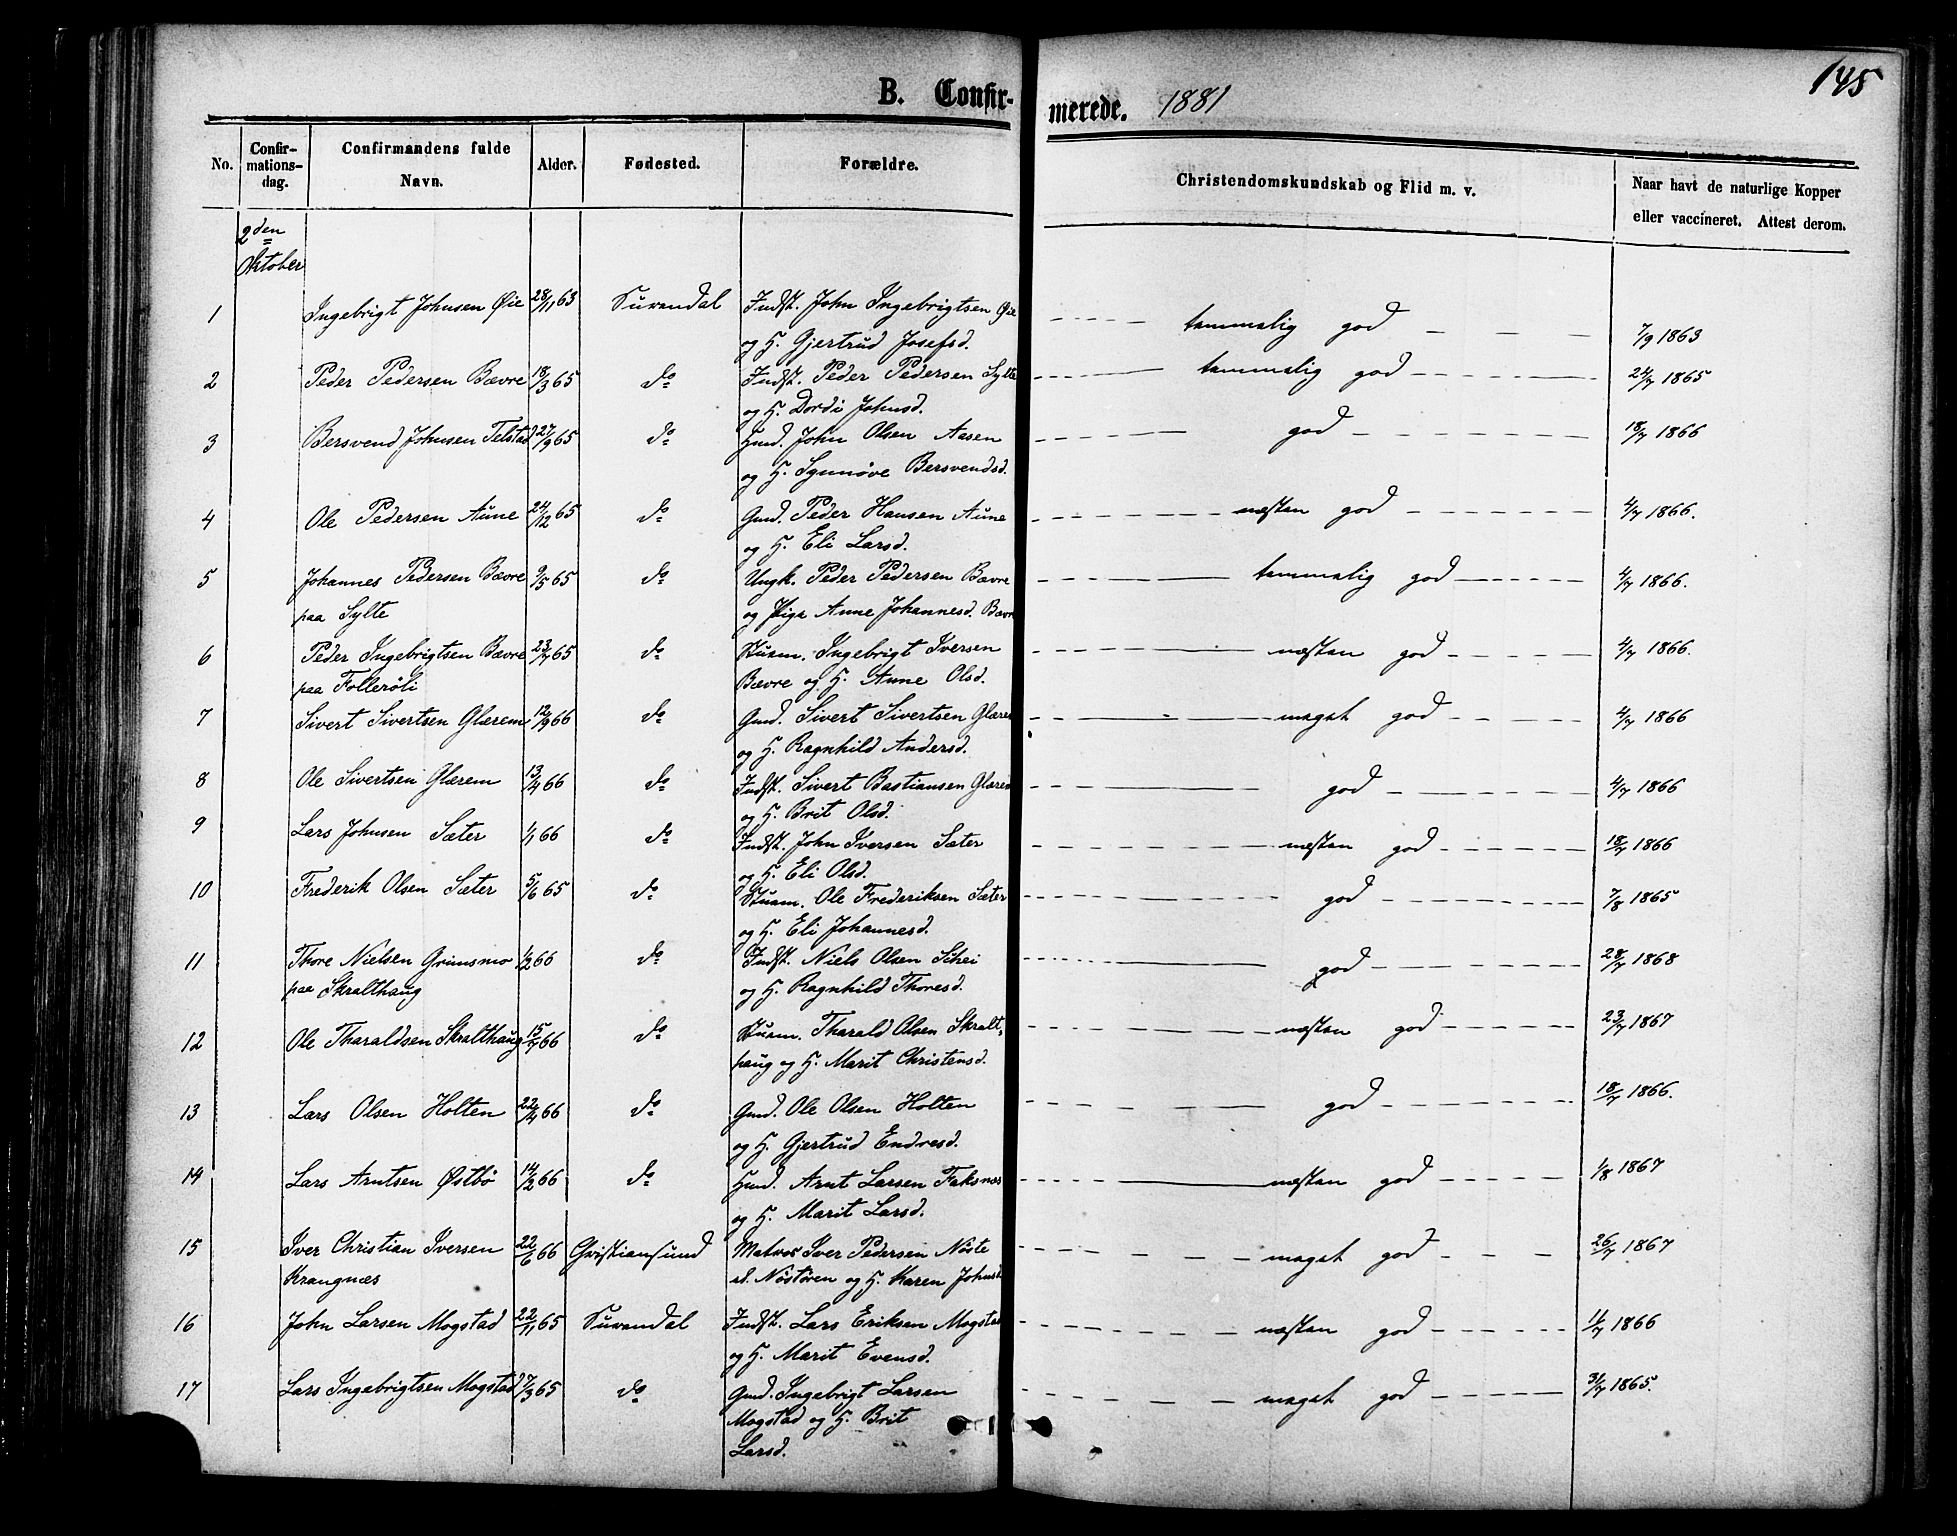 145
B. Confirmerede. 1881
No. Confirmationsdag. Confirmandens fulde Navn. Alder. Fødested. Forældre. Christendomskundskab og Flid m. v. Naar havt de naturlige Kopper eller vaccineret. Attest derom.
2den
Oktober
1 Ingebrigt Johnsen Øie 28/11 63 Surendal Indst. John Ingebrigtsen Øie tammalig god 7/9 1863
og H. Gjertrud Josefsd.
2 Peder Pedersen Bævre 18/3 65 do Indst. Peder Pedersen Sylte tammalig god 24/7 1865
og H. Dordi Johnsd.
3 Bersvend Johnsen Telstad 27/9 65 do Gmd. John Olsen Aasen god 18/7 1866
og H. Synnøve Bersvendsd.
4 Ole Pedersen Aune 24/12 65 do Gmd. Peder Hansen Aune næsten god 4/7 1866.
og H. Eli Larsd.
5 Johannes Pedersen Bævre 9/5 65 do Ungk. Peder Pedersen Bævre tammalig god 4/7 1866.
paa Sylte og Pige Anne Johannesd. Bævre
6 Peder Ingebrigtsen Bævre 23/7 65 do Husm. Ingebrigt Iversen næsten god 4/7 1866.
paa Follerøli Bævre og H. Anne Olsd.
7 Sivert Sivertsen Glærem 12/9 66 do Gmd. Sivert Sivertsen Glærem meget god 4/7 1866
og H. Ragnhild Andersd.
8 Ole Sivertsen Glærem 13/4 66 do Indst. Sivert Bastiansen Glærem god 4/7 1866
og H. Brit Olsd.
9 Lars Johnsen Sæter 1/1 66 do Indst. John Iversen Sæter næsten god 18/7 1866
og H. Eli Olsd.
10 Frederik Olsen Sæter 5/6 65 do Husm. Ole Frederiksen Sæter god 7/8 1865
og H. Eli Johannesd.
11 Thore Nielsen Grimsmo 1/2 66 do Indst. Niels Olsen Schei god 28/7 1868
paa Skralthaug og H. Ragnhild Thoresd.
12 Ole Tharaldsen Skralthaug 15/7 66 do Husm. Tharald Olsen Skralt- næsten god 23/7 1867
haug og H. Marit Christensd.
13 Lars Olsen Holten 22/4 66 do Gmd. Ole Olsen Holten god 18/7 1866.
og H. Gjertrud Endresd.
14 Lars Arntsen Østbö 14/2 66 do Gmd. Arnt Larsen Faksnes næsten god 1/8 1867
og H. Marit Larsd.
15 Iver Christian Iversen 22/6 66 Christiansund Matros Iver Pedersen Nöste meget god 26/7 1867
Krangnæs Nöstören og H. Karen Johnsd.
16 John Larsen Mogstad 22/11 65 Surendal Indst. Lars Eriksen Mogstad næsten god 11/7 1866
og H. Marit Evensd.
17 Lars Ingebrigtsen Mogstad 7/3 65 do Gmd. Ingebrigt Larsen meget god 31/7 1865.
Mogstad og H. Brit
Larsd.